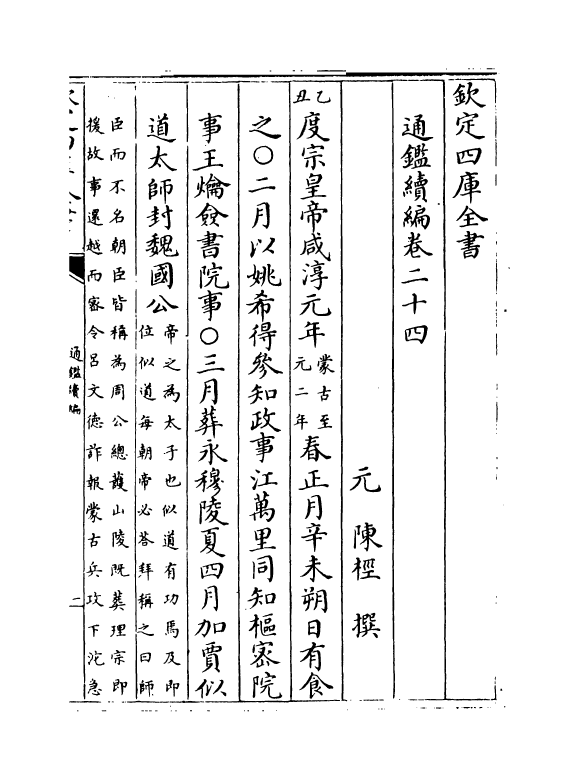 欽定四庫全書
通鑑續編卷二十四
元 陳桱 撰
乙丑度宗皇帝咸淳元年蒙古至元二年春正月辛未朔日有食
之○二月以姚希得參知政事江萬里同知樞密院
事王爚僉書院事○三月葬永穆陵夏四月加賈似
道太師封魏國公帝之為太子也似道有功焉及即
位似道每朝帝必答拜稱之曰師
臣而不名朝臣皆稱為周公總護山陵既葬理宗即
援故事還越而密令呂文德詐報蒙古兵攻下沱急
通鑑續編